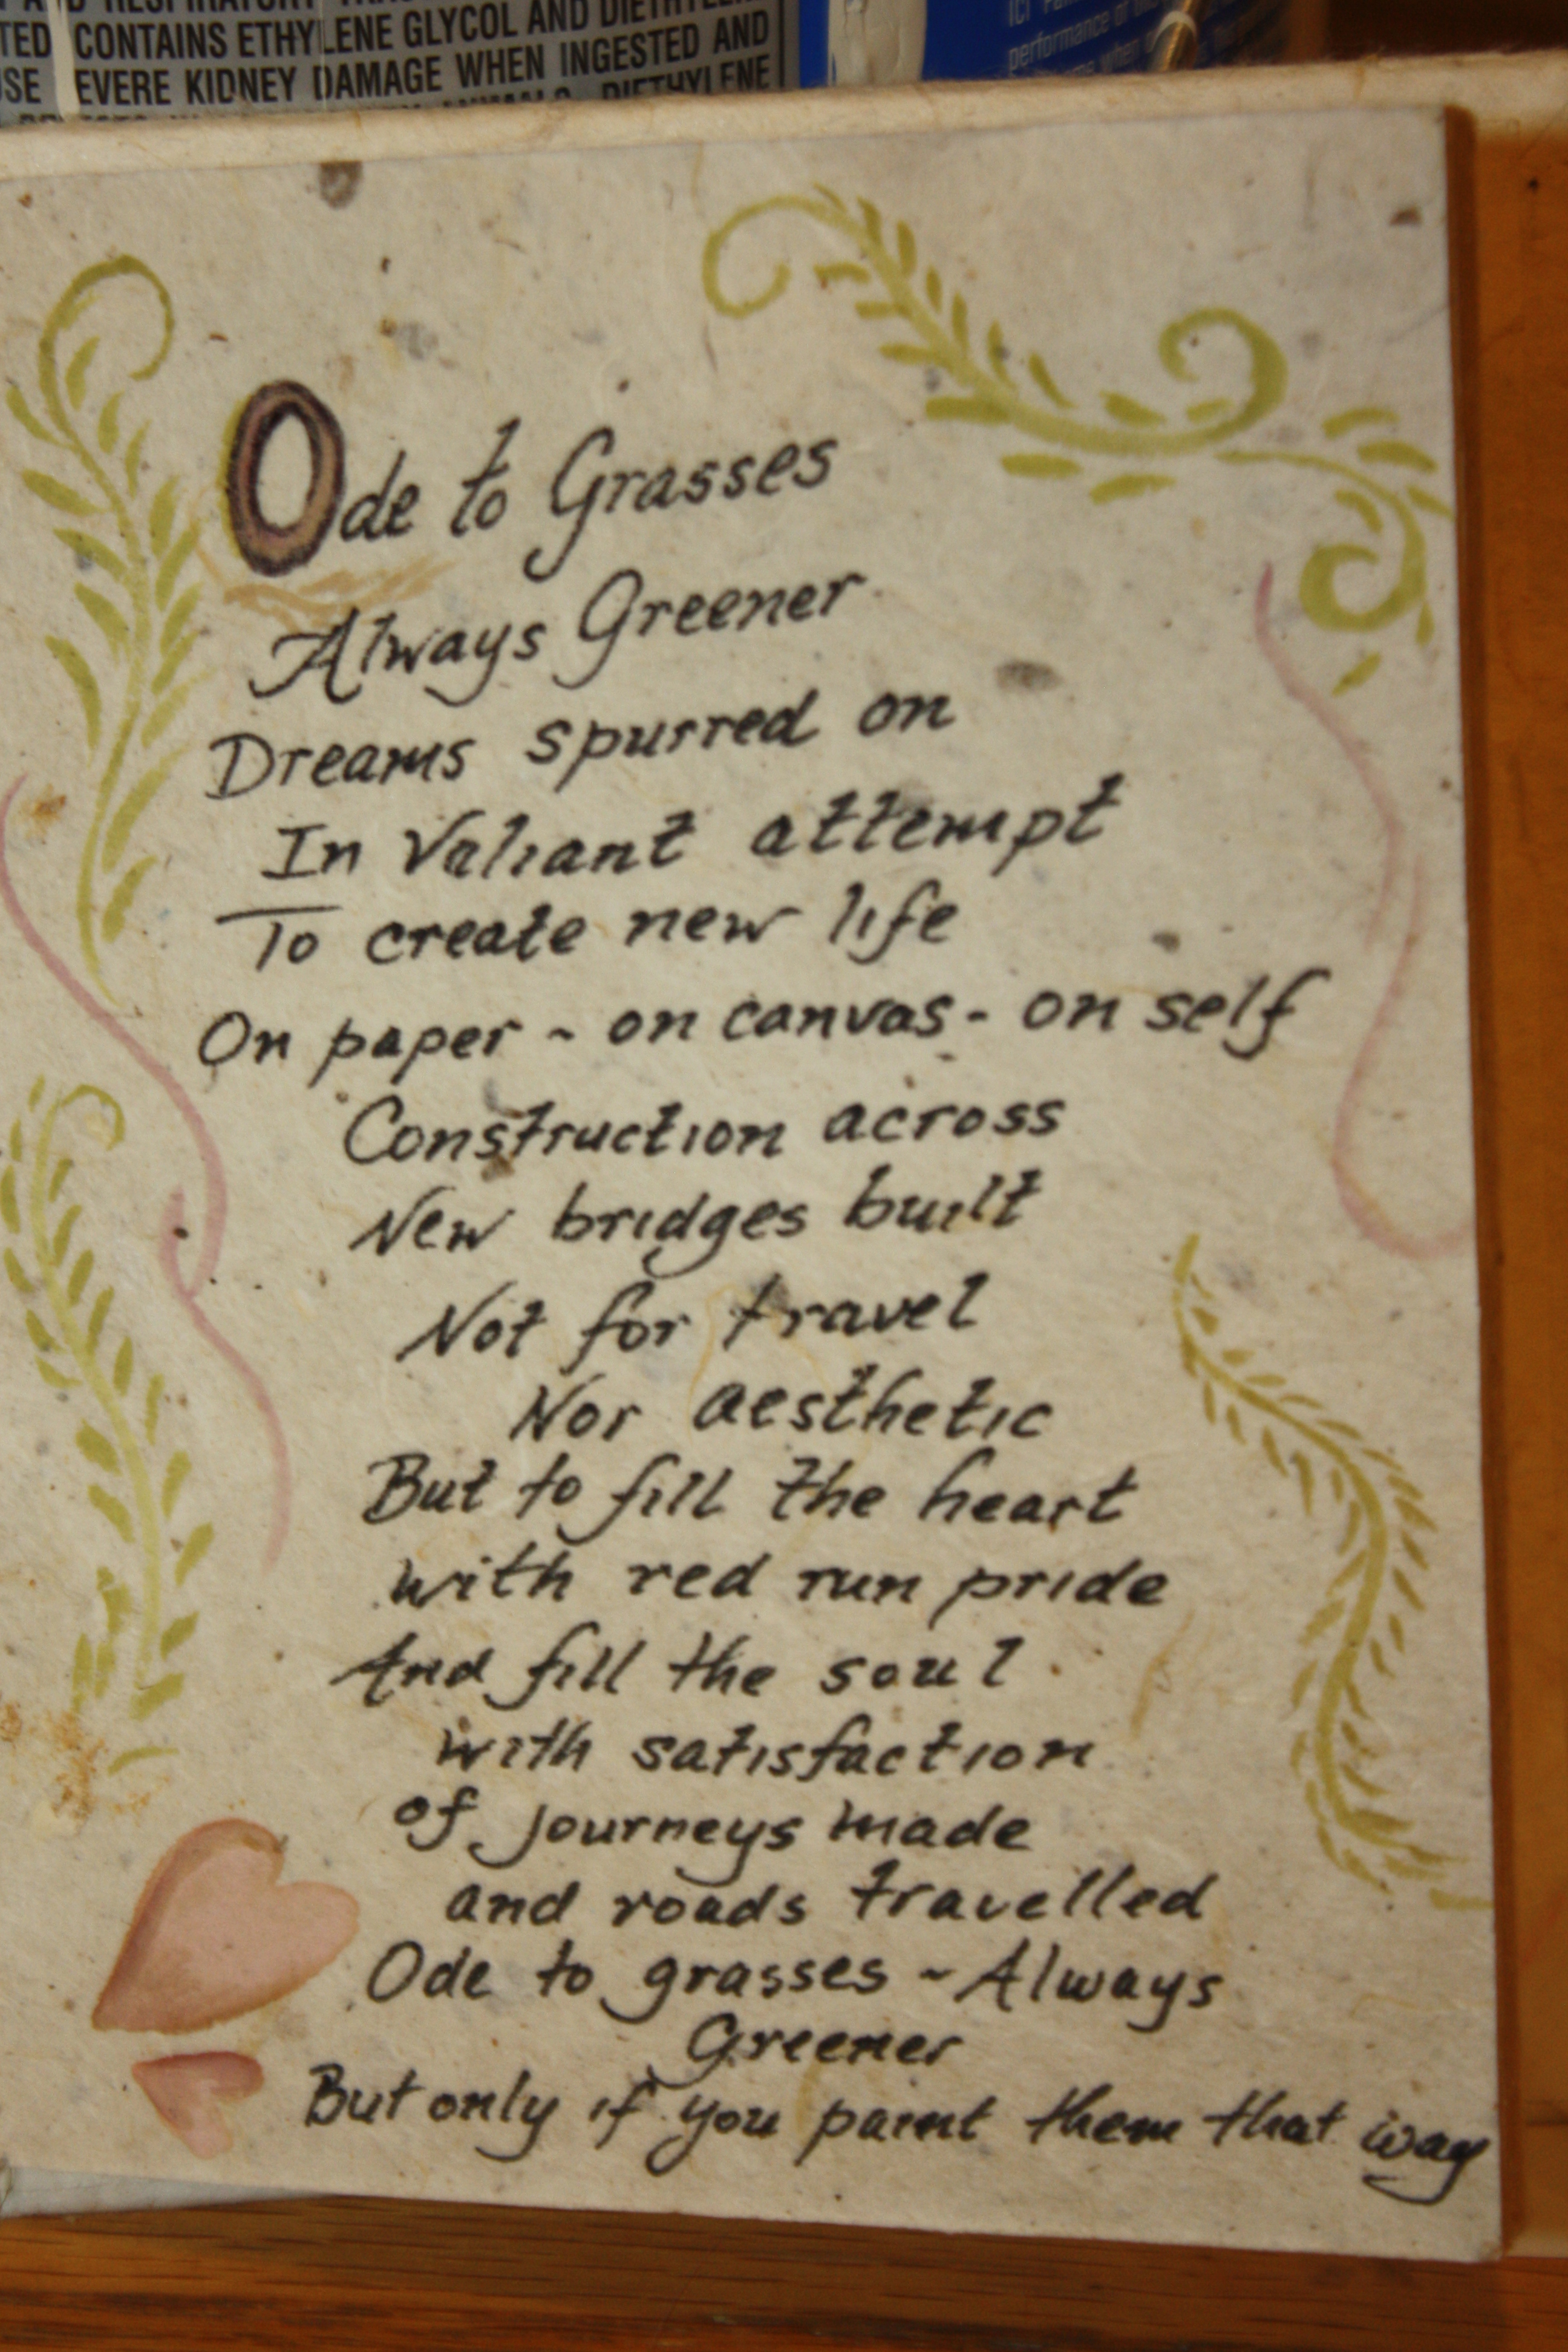 AND RESPIRATORY
TED CONTAINS ETHYLENE GLYCOL AND
USE EVERE KIDNEY DAMAGE WHEN INGESTED AND
DIETHYLENE
ICI
performance of
when
Ode to Grasses
Always Greener
Dreams spurred on
In Valiant attempt
To create new life
On paper ~ on canvas - on self
Construction across
New bridges built
Not for travel
Nor aesthetic
But to fill the heart
with red run pride
And fill the soul
with satisfaction
of journeys made
and roads travelled
Ode to grasses ~ Always
Greener
But only if you paint them that way